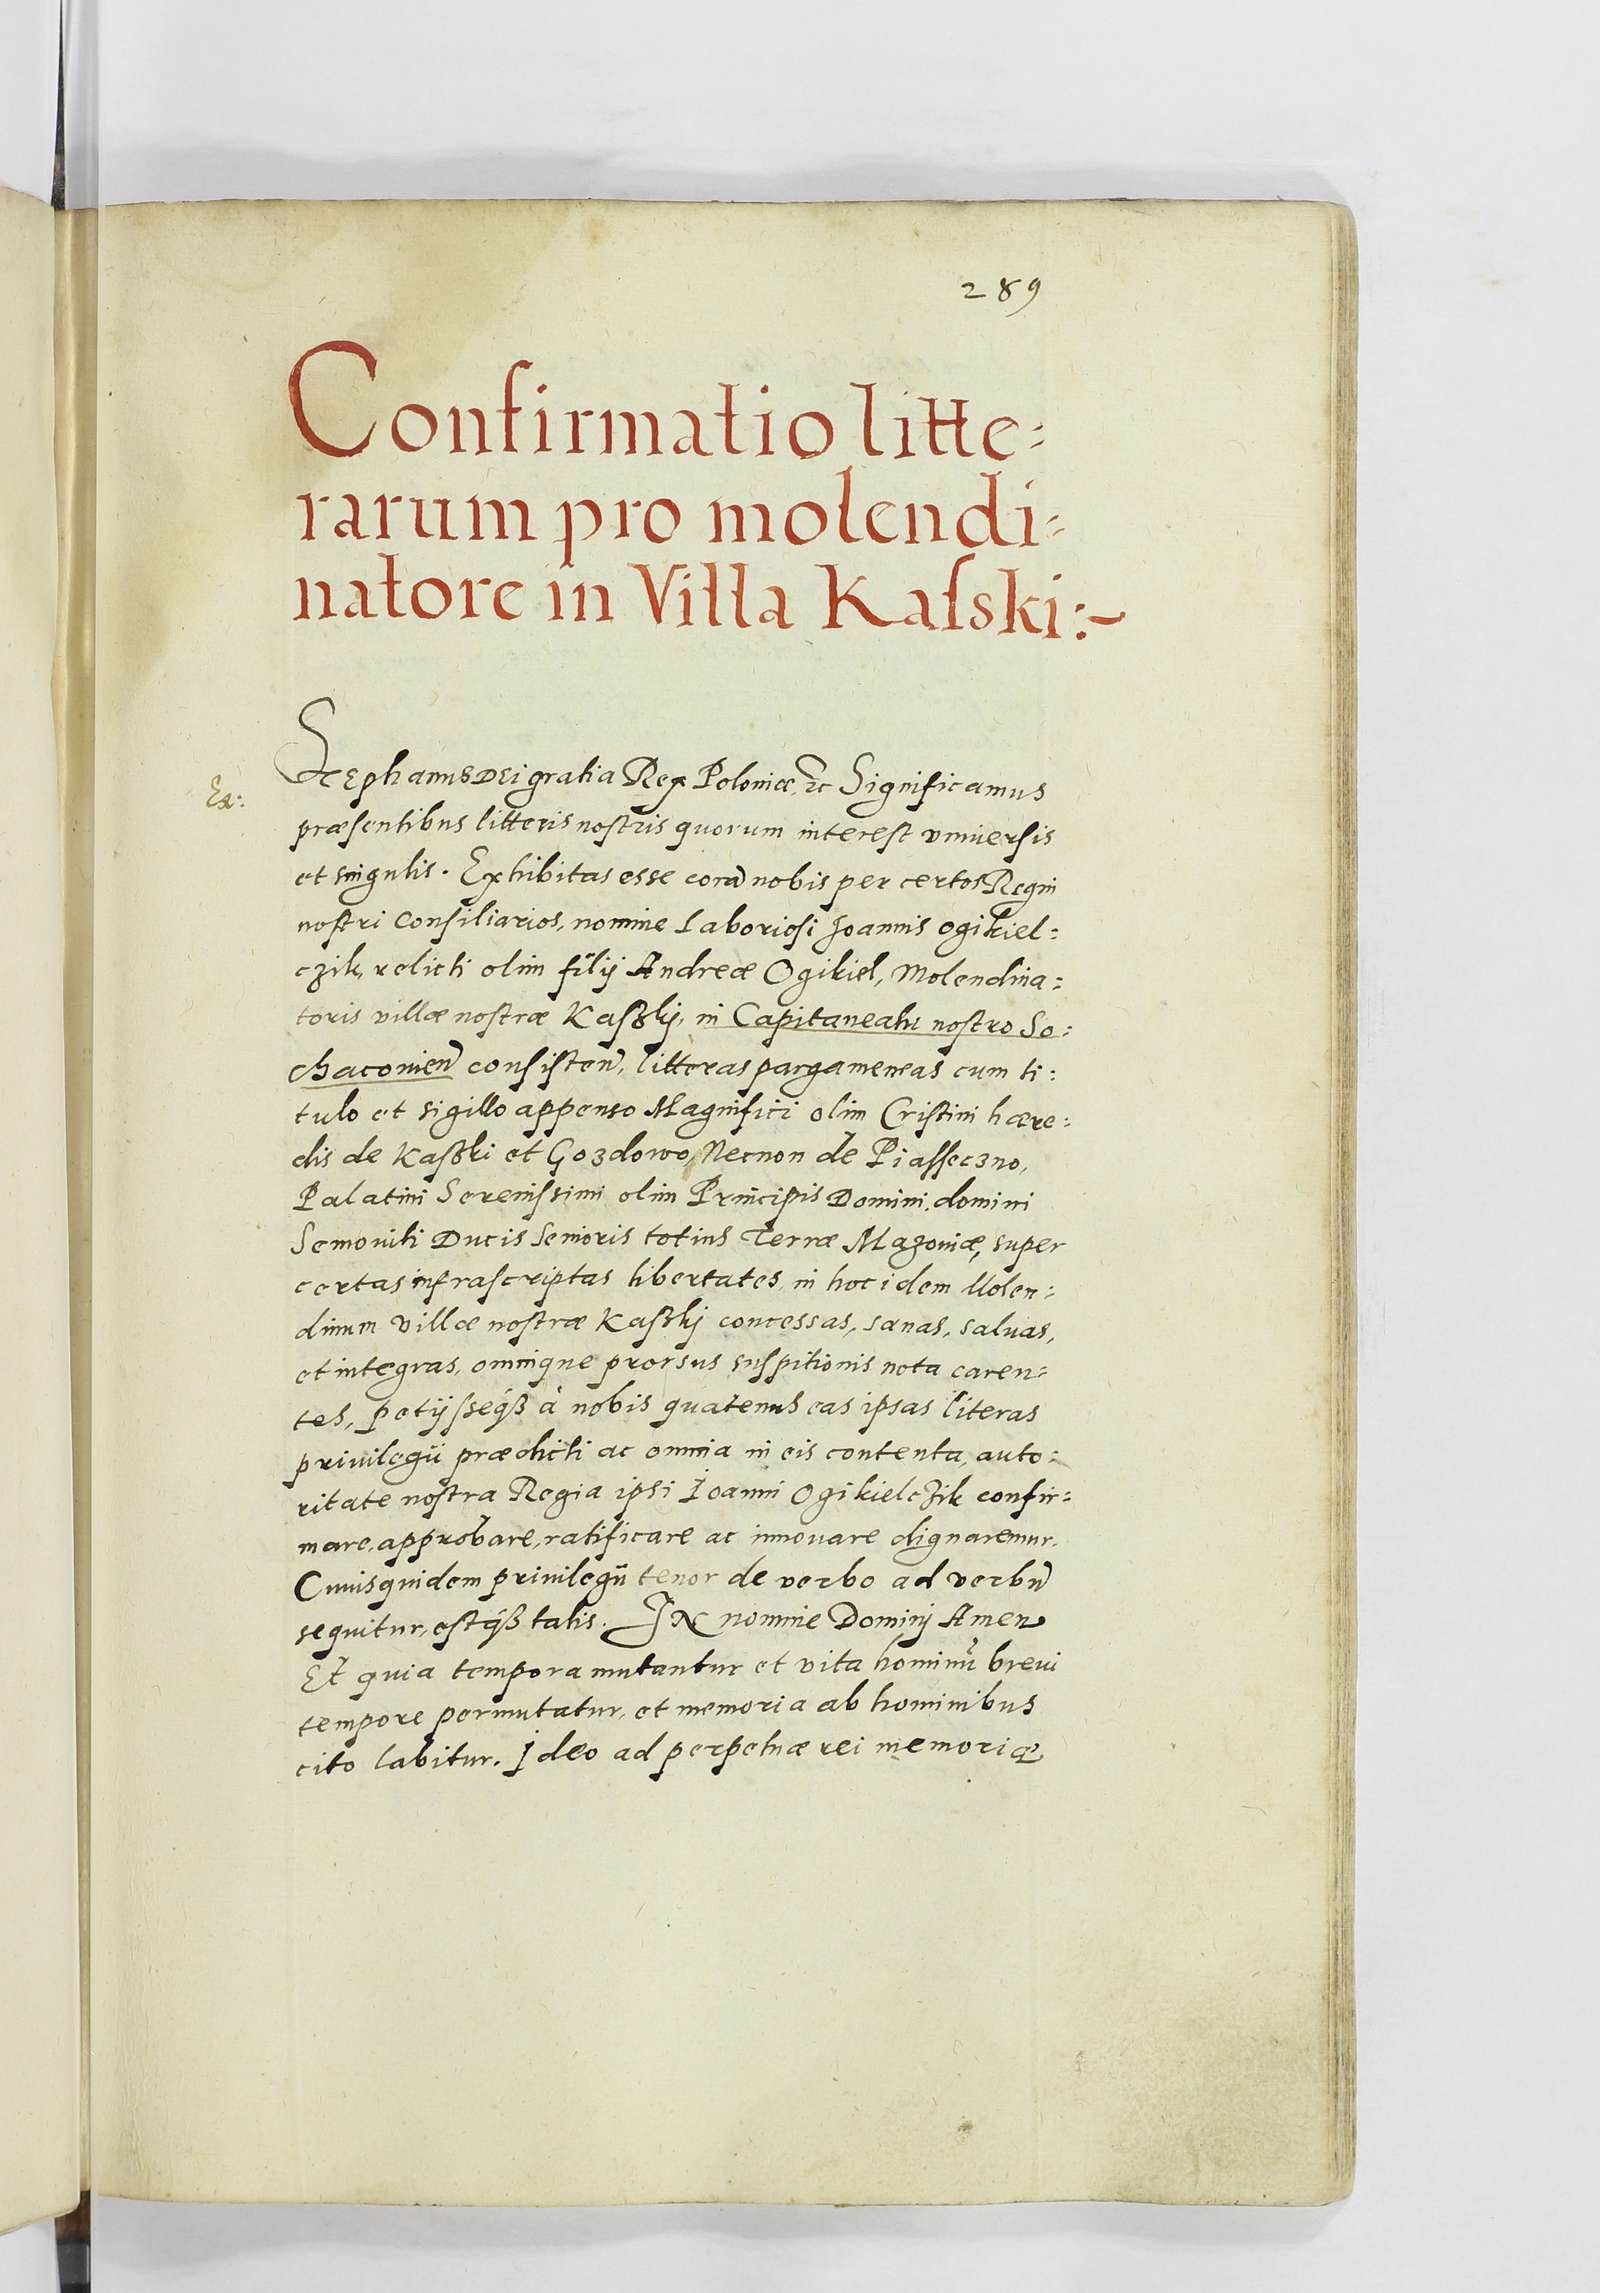 289
Confirmatio litte:
rarum pro molendi:
natore in Villa Kaſski:~
Ex:
Stephanus DEI gratia Rex Poloniæ, etc Significamus
præſentibus litteris nostris quorum interest vniuerſis
et singulis. Exhibitas esse corã nobis per certos Regni
nostri Conſiliarios, nomine Laborioſi Joannis Ogikiel:
czik, relicti olim filij Andreæ Ogikiel, Molendina:
toris villæ nostræ Kaſzkj, in Capitaneatu nostro So:
chaconieñ conſisteñ, litteras pargameneas cum ti:
tulo et sigillo appenso Magnifici olim Cristini hære:
dis de Kaſzki et Gozdowo, Necnon de Piaſſeczno,
Palatini Serenissimi olim Principis Domini, domini
Semouiti Ducis Senioris totius Terræ Mazouiæ, super
certas infraſcriptas libertates, in hoc idem Molen:
dinum villæ nostræ Kaſzkj concessas, sanas, saluas,
et integras, omnique prorsus suſpitionis nota caren:
tes, petijſſeqꝫ à nobis quatenus eas ipsas literas
priuilegij prædicti ac omnia in eis contenta, auto:
ritate nostra Regia ipsi Ioanni Ogikielczik confir:
mare, approbare, ratificare ac innouare dignaremur.
Cuiusquidem priuilegij tenor de verbo ad verbũ
sequitur, estqꝫ talis. IN nomine Dominj Amen
Et quia tempora mutantur et vita hominũ breui
tempore permutatur, et memoria ab hominibus
cito labitur. Ideo ad perpetuæ rei memoriã,